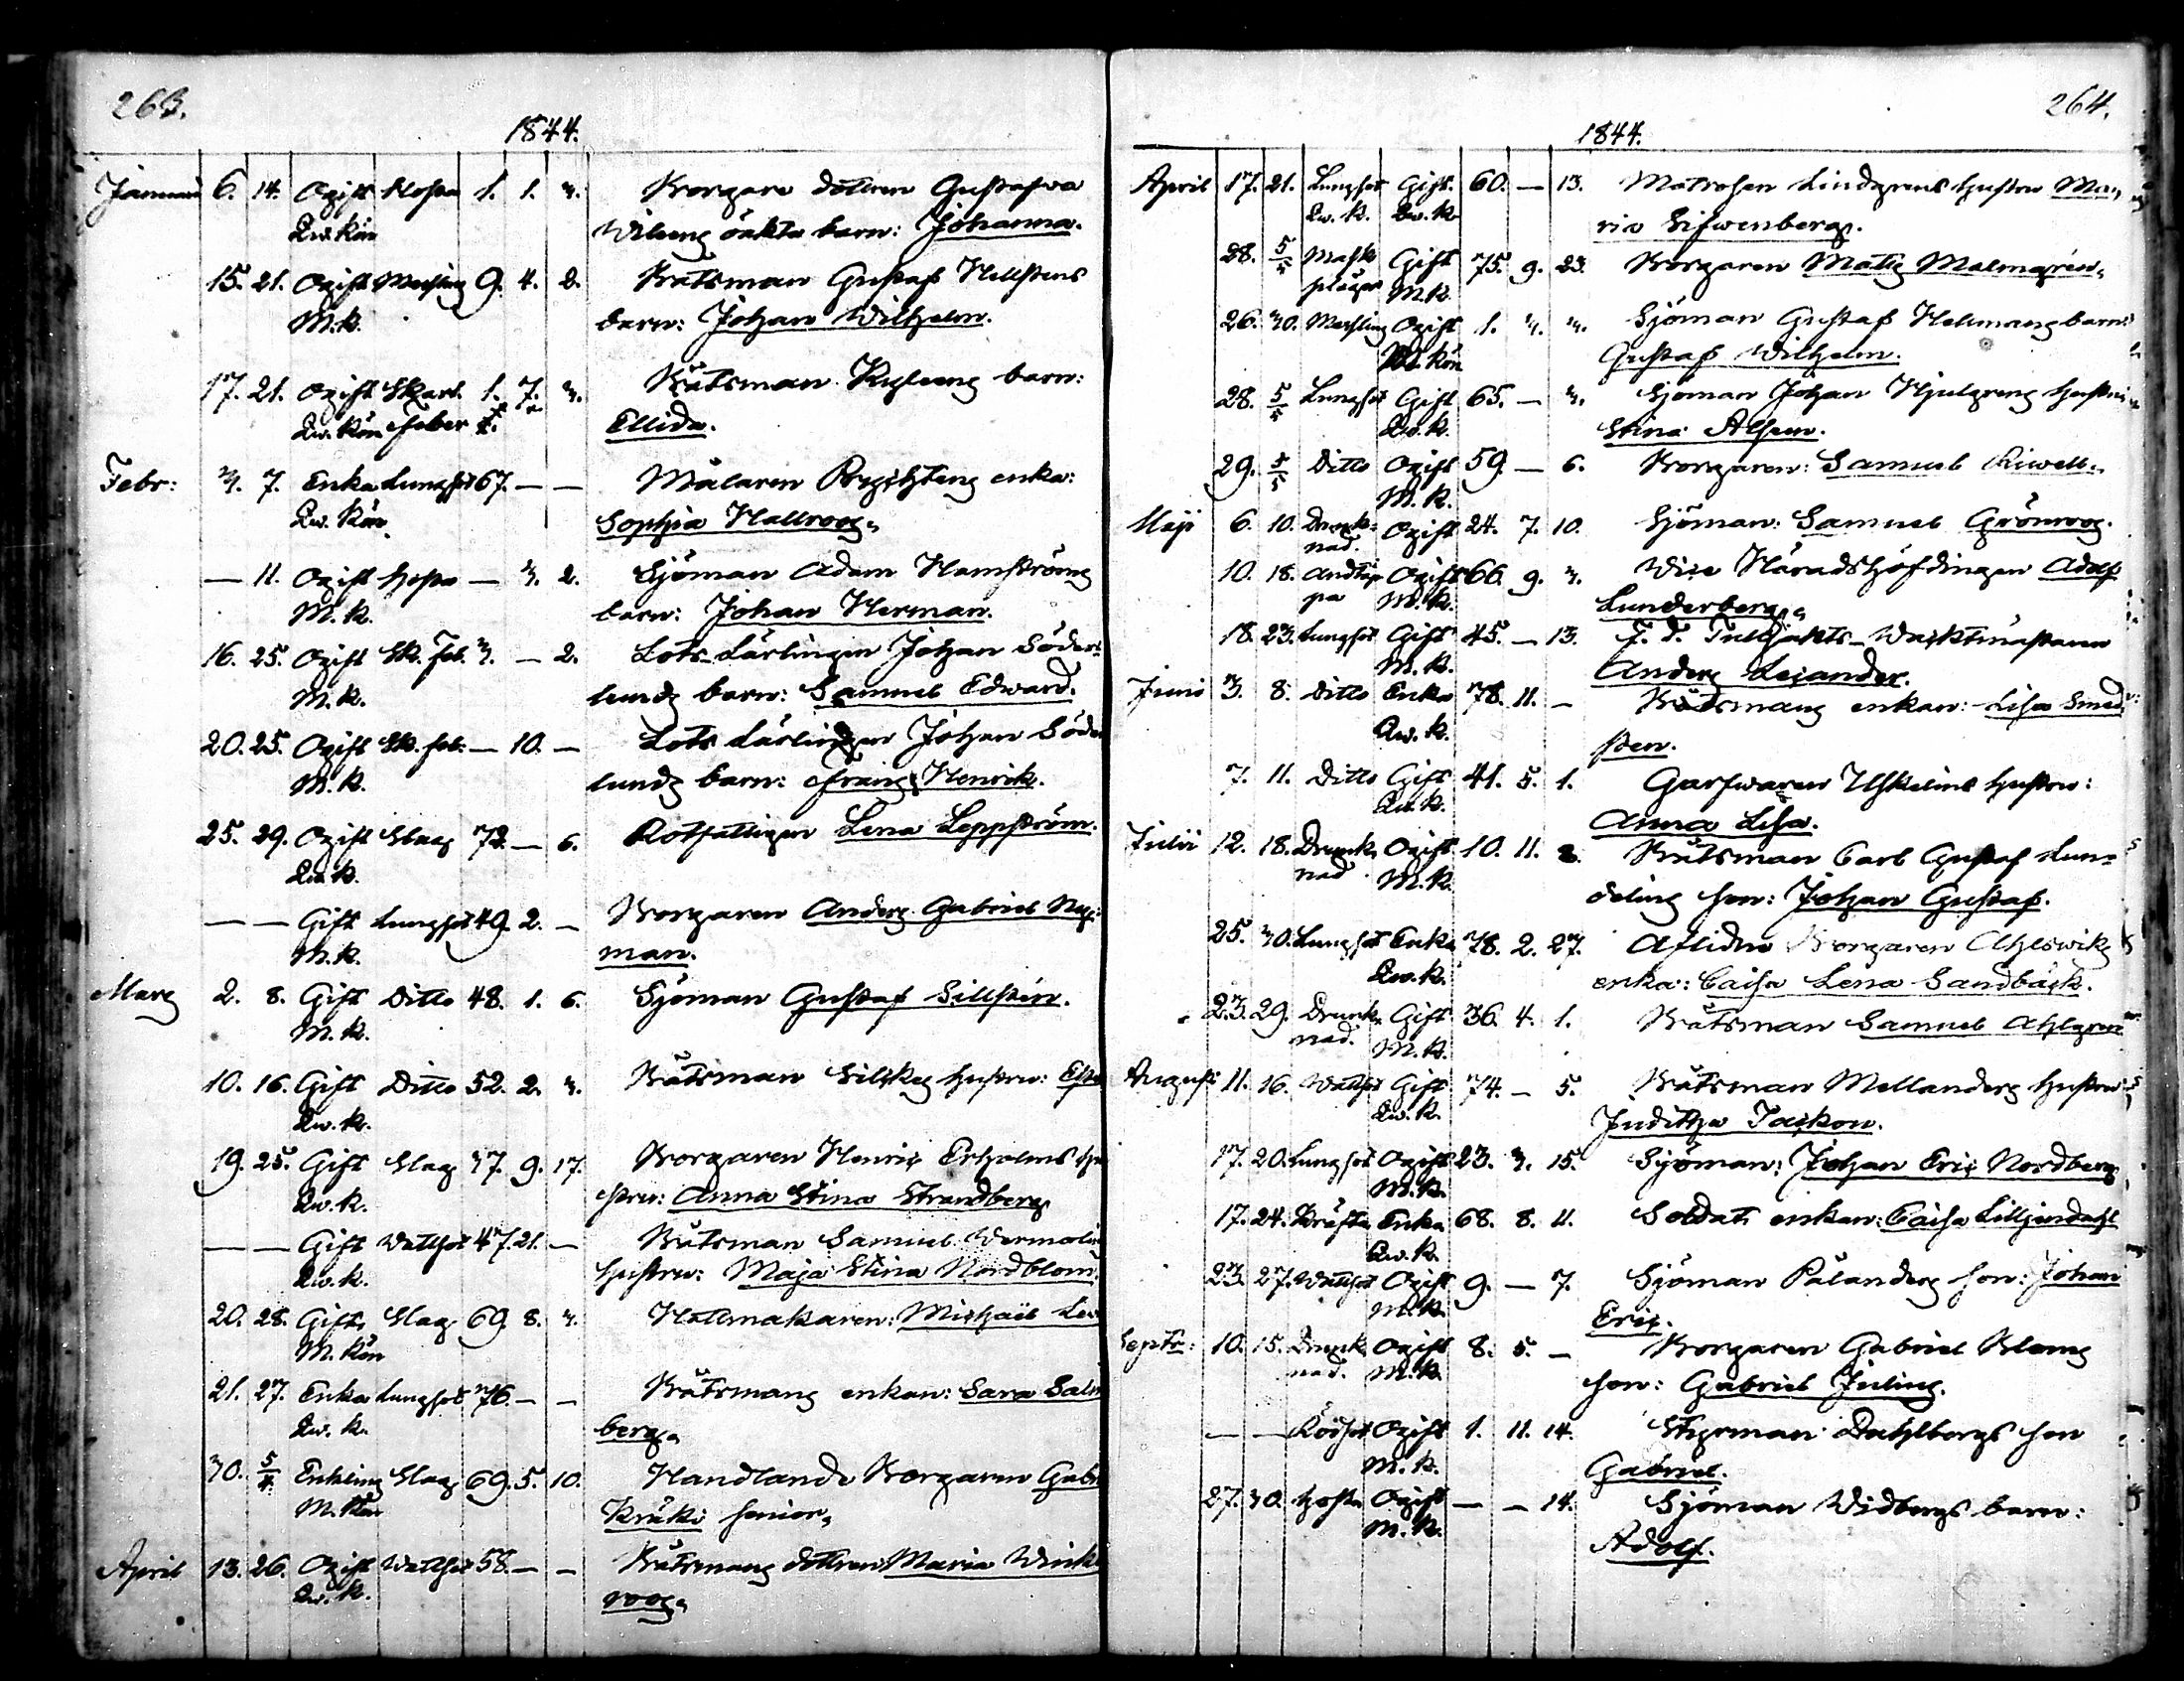 263.
1844.
Januari 6. 14. Ogift Hosta 1. 1. 3. Borgare dottren Gustafva
Qw. Kön oäkta barn: Johanna.
15. 21. Ogift Meszling 9. 4. 2. Båtsman Gustaf Hellstens
M.k. barn: Johan Wilhelm.
17. 21. Ogift Skarl. 1. 7. 3. Båtsman barn:
Qw. Kön feber Ellida.
Febr: 3. 7. Enka Lungsot 67. — — Målaren enka:
Qw. Kön Sophia Hallroos.
— 11. Ogift Hosta — 3. 2. Sjöman Adam Hamströms
M. k. barn: Johan Herman.
16. 25. Ogift Sk. Feb. 3. — 2. Lots Lärlingen Johan Söder-
M. k. lunds barn: Samuel Edward.
20. 25. Ogift Sk. feb. — 10. — Lots Lärlingen Johan Söder
M. k. lunds barn: Frans Henrik.
25. 29. Ogift Slag 72. — 6. Rotfattigen Lena Leppström.
Qw. k.
— — Gift Lungsot 49. 2. — Borgaren Anders Gabriel Ny-
M. k. man.
Mars 2. 8. Gift Ditto 48. 1. 6. Sjöman Gustaf Sillstén.
M. k.
10. 16. Gift Ditto 52. 2. 3. Båtsman hustru:
Qw. k.
19. 25. Gift Slag 37. 9. 17. Borgaren Henric Erholms hu
Qw. k. stru: Anna Stina Strandberg
— — Gift Wattsot 47. 21. — Båtsman Samuel
Qw. k. hustru: Maja Stina Nordblom.
20. 28. Gift Slag 69. 8. 3. Hattmakaren: Michaël
M. Kön
21. 27. Enka Lungsot 76. — — Båtsmans enkan: Sara
Qw. k. berg.
30. 5/4 Enkling Slag 69. 5. 10. Handlande Borgaren
M. Kön senior.
April 13. 26. Ogift Wattsot 58. — — Båtsmans dottren Maria
Qw. k. roos.
264.
1844.
April 17. 21. Lungsot Gift. 60. — 13. Matrosen Lindgrens hustru Ma-
Qw. k. Qw. k. ria Silfwenberg.
28. 5/5 Mask Gift 75. 9. 23. Borgaren Matts Malmgrén.
plågor M.k.
26. 30. Meszling Ogift 1. 3. 3. Sjöman Gustaf Hellmans barn:
M. Kön Gustaf Wilhelm.
28. 5/5 Lungsot Gift 65. — 3. Sjöman Johan Hjulgrens hustru
Qw. k. Stina Alsen.
29. 5/5 Ditto Ogift 59. — 6. Borgaren: Samuel
M. k.
Maji 6. 10. Drunk- Ogift 24. 7. 10. Sjöman: Samuel Grönroos.
nad.
10. 18. Andtäp- Ogift 66. 9. 3. Vice Häradshöfdingen Adolf
pa M. k. Lunderberg.
18. 23. Lungsot Gift 45. — 13. F. d. Tulljakts-Wacktmästaren
M. k. Anders Lejander.
Junii 3. 8. Ditto Enka 78. 11. — Båtsmans enkan: Lisa Smed
Qw. k. sten.
7. 11. Ditto Gift 41. 5. 1. Garfwaren hustru:
Qw. k. Anna Lisa.
Julii 12. 18. Drunk- Ogift 10. 11. 8. Båtsman Carl Gustaf Lun-
nad M. k. delins son: Johan Gustaf.
25. 30. Lungsot Enka 78. 2. 27. Aflidne Borgaren Ahlswiks
Qw. k. enka: Caisa Lena Sandbäck.
23. 29. Drunk- Gift 36. 4. 1. Båtsman Samuel Ahlgren
nad. M. k.
Augusti 11. 16. Wattsot Gift 74. — 5. Båtsman Mellanders hustru:
Qw. k. Juditha Tackou.
17. 20. Lungsot Ogift 23. 3. 15. Sjöman: Johan Eric Nordberg
M. k.
17. 24. Kräfta Enka 68. 8. 11. Soldats enkan: Caisa Lilljendahl
Qw. k.
23. 27. Wattsot Ogift 9. — 7. Sjöman Pålanders son: Johan
M. k. Eric.
Septr: 10. 15. Drunk- Ogift 8. 5. — Borgaren Gabriel
nad. M. k. son: Gabriel Julius.
— — Rödsot Ogift 1. 11. 14. Styrman Dahlbergs son
M. k. Gabriel.
27. 30. Hosta Ogift — — 14. Sjöman Widbergs barn:
M. k. Adolf.